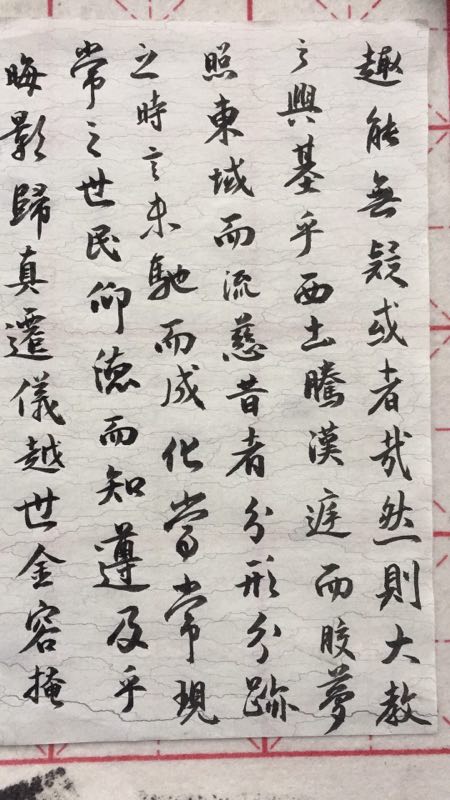 趣能無疑或者哉然則大教
之興基乎西土騰漢庭而皎夢
照東域而流慈昔者分形分跡
之時言未馳而成化當常現
常之世民仰德而知遵及乎
晦影歸真遷儀越世金容掩